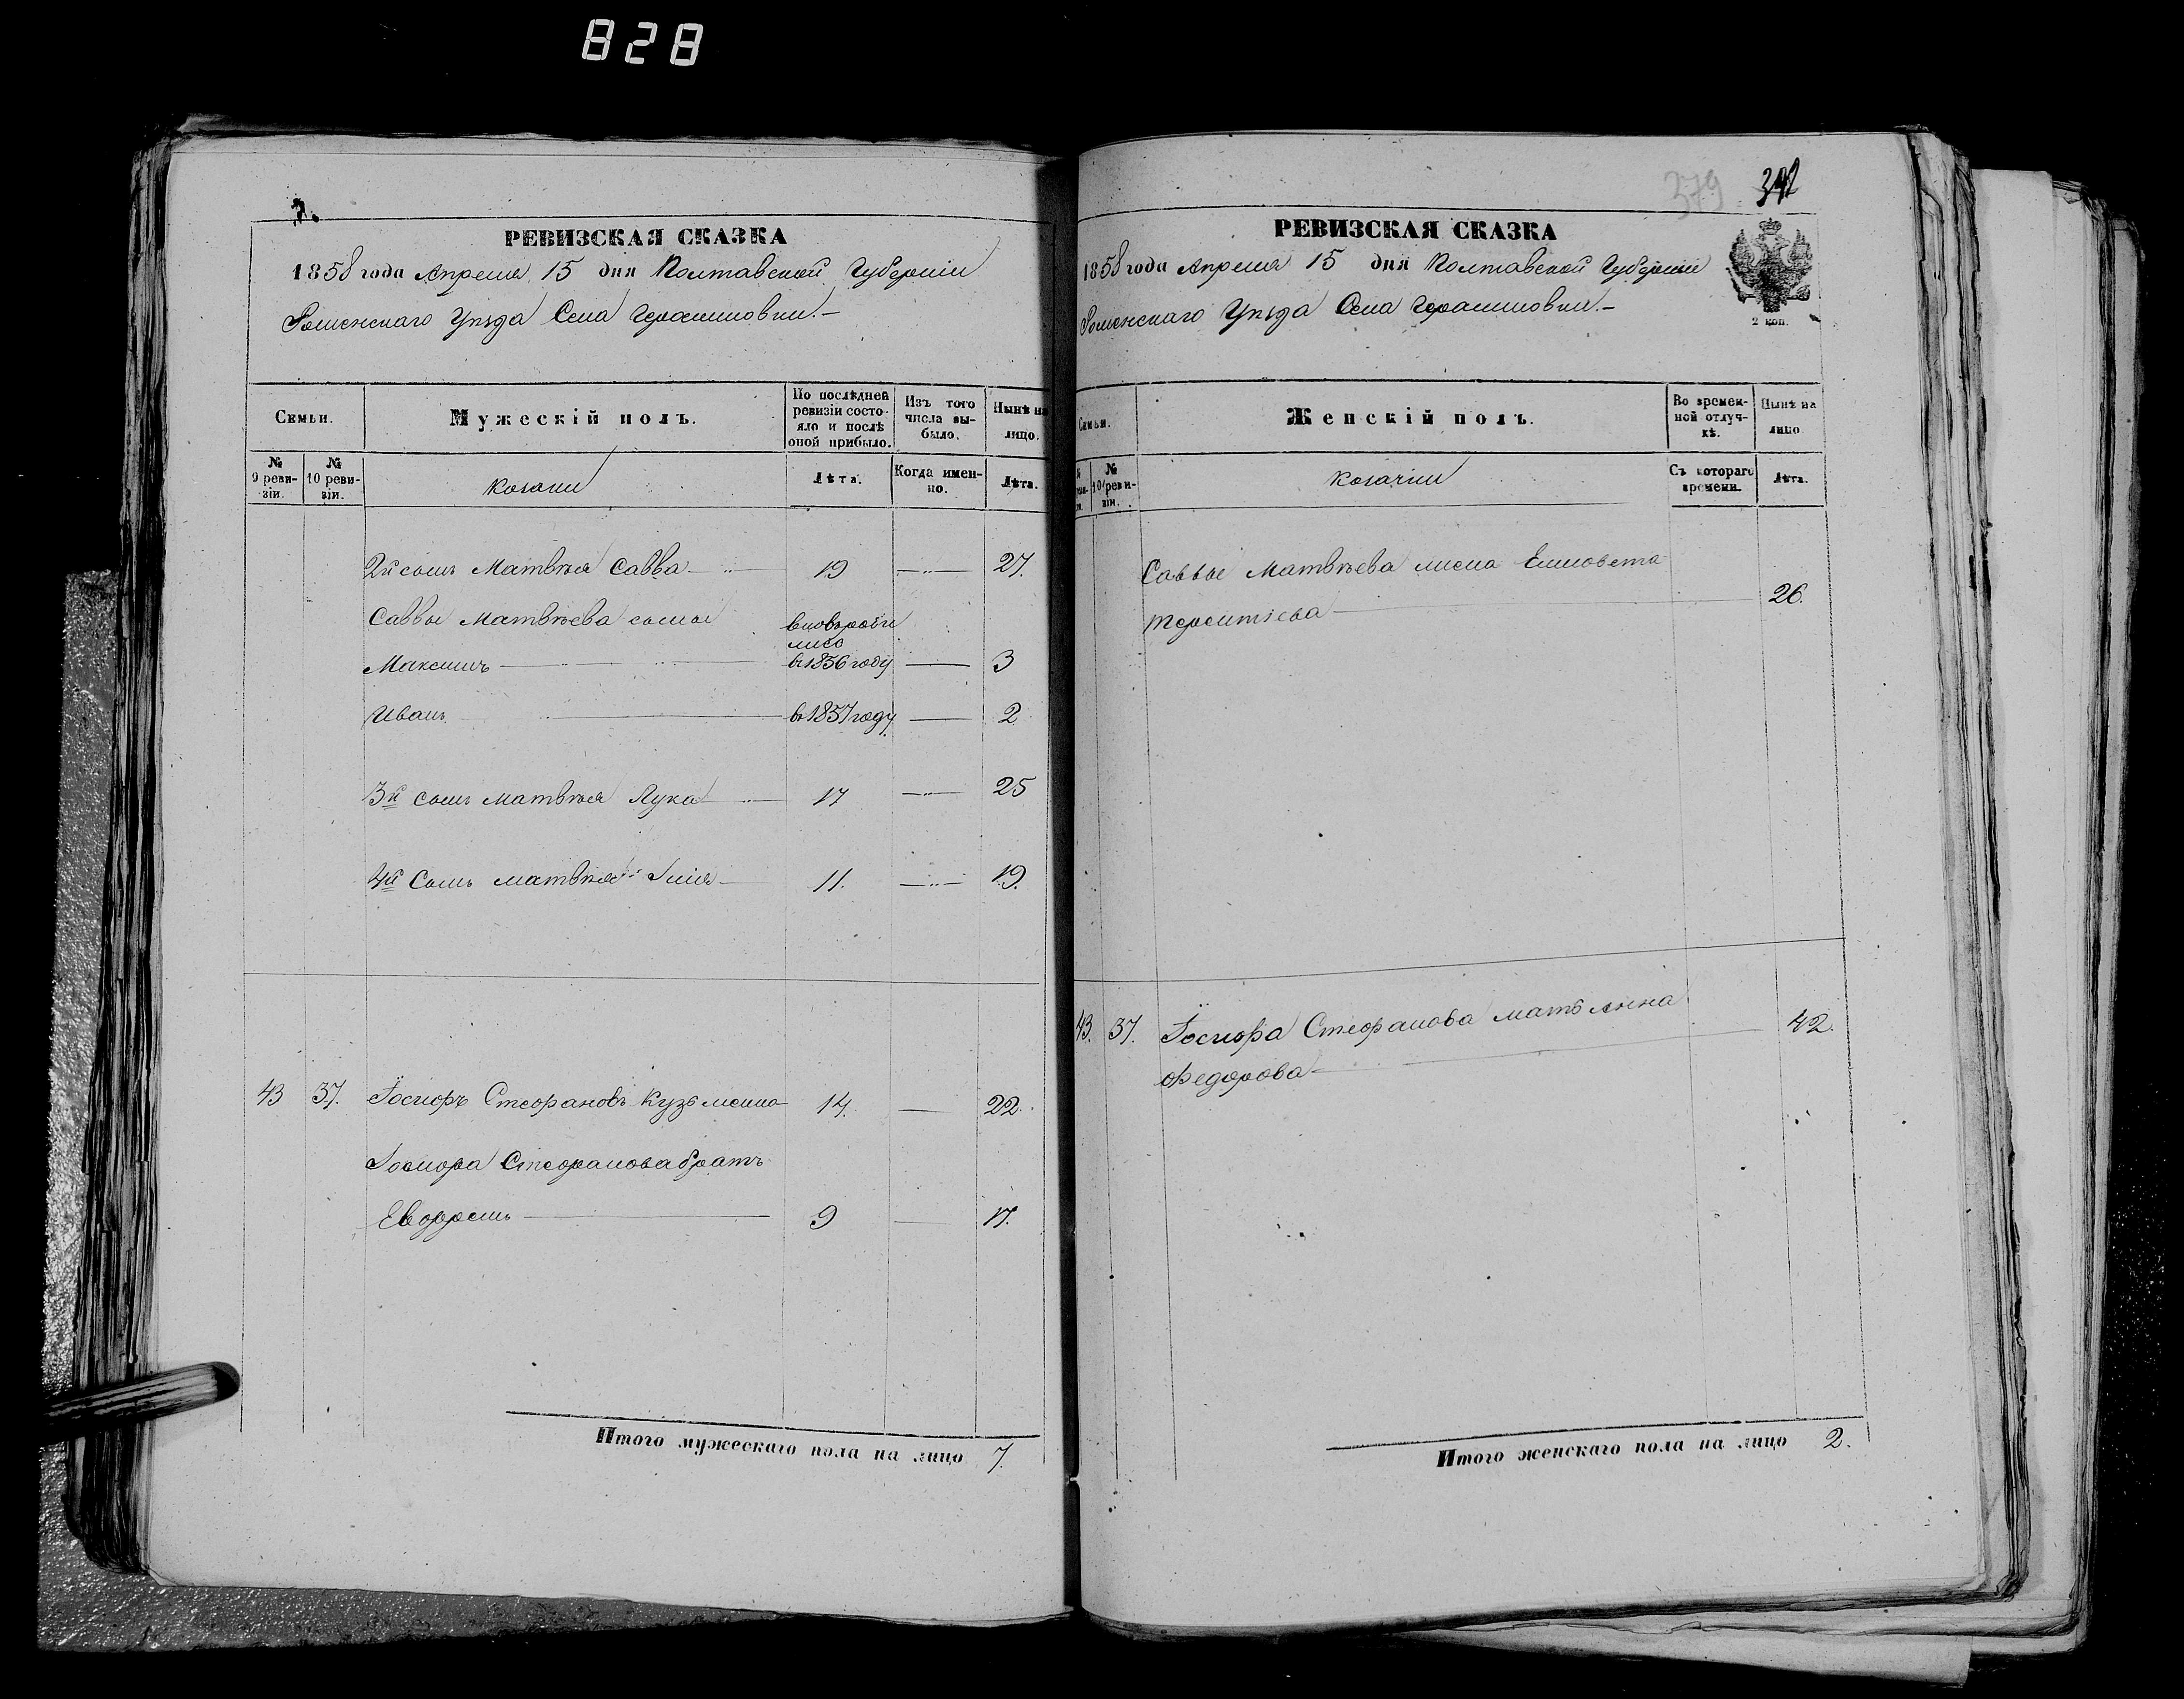 828
7.
РЕВИЗСКАЯ СКАЗКА
1858 года Апреля 15 дня Полтавской Губерніи
Роменскаго Уѣзда Села Герасимовки.—
Семьи.
Мужескій полъ.
По послѣдней ревизіи состояло и послѣ оной прибыло.
Изъ того числа выбыло.
Нынѣ на лицо.
№ 9 ревизіи.
№ 10 ревизіи.
Козаки
Лѣта.
Когда именно.
Лѣта.
2й сынъ Матвѣя Савва 19 27.
Саввы Матвѣева сыны вновьроди
лись
Максимъ въ 1856 году 3
Иванъ въ 1857 году 2
3й сынъ Матвѣя Лука 17 25
4й Сынъ Матвѣя Илія 11. 19.
43 37. Іосифъ Стефановъ Кузьменко 14. 22.
Іосифа Стефанова братъ
Евфремъ 9 17.
Итого мужескаго пола на лицо 7.
379 342
РЕВИЗСКАЯ СКАЗКА
1858 года Апреля 15 дня Полтавской Губерніи
Роменскаго Уѣзда Села Герасимовки.—
2 коп.
Семьи.
Женскій полъ.
Во временной отлучкѣ.
Нынѣ на лицо.
№ 10 ревизіи.
Козачки
Съ котораго времени.
Лѣта.
Саввы Матвѣева жена Елисовета
Терентіева 26.
43. 37. Іосифа Стефанова мать Анна 42.
Федорова
Итого женскаго пола на лицо 2.